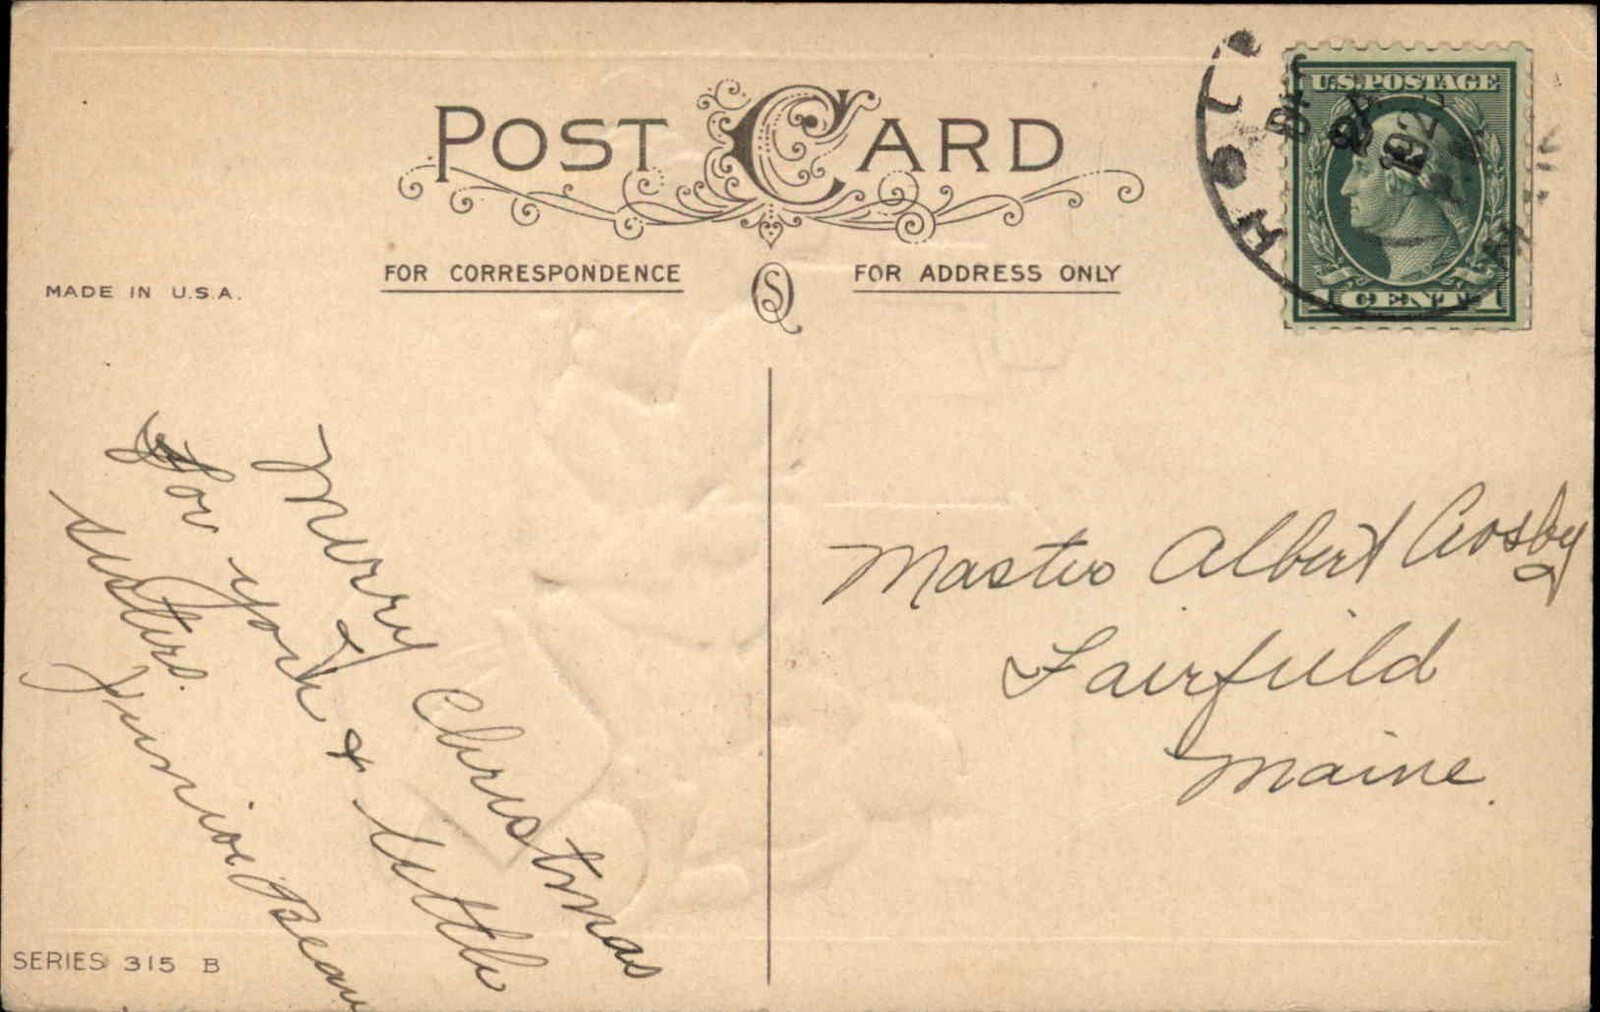 POST CARD
FOR CORRESPONDENCE
FOR ADDRESS ONLY
MADE IN U.S.A.
U.S. POSTAGE
1 CENT 1
DEC
24
192
Merry Christmas
For you & little
sisters.
Junior Bean
Master Albert Crosby
Fairfield
Maine.
SERIES 315 B